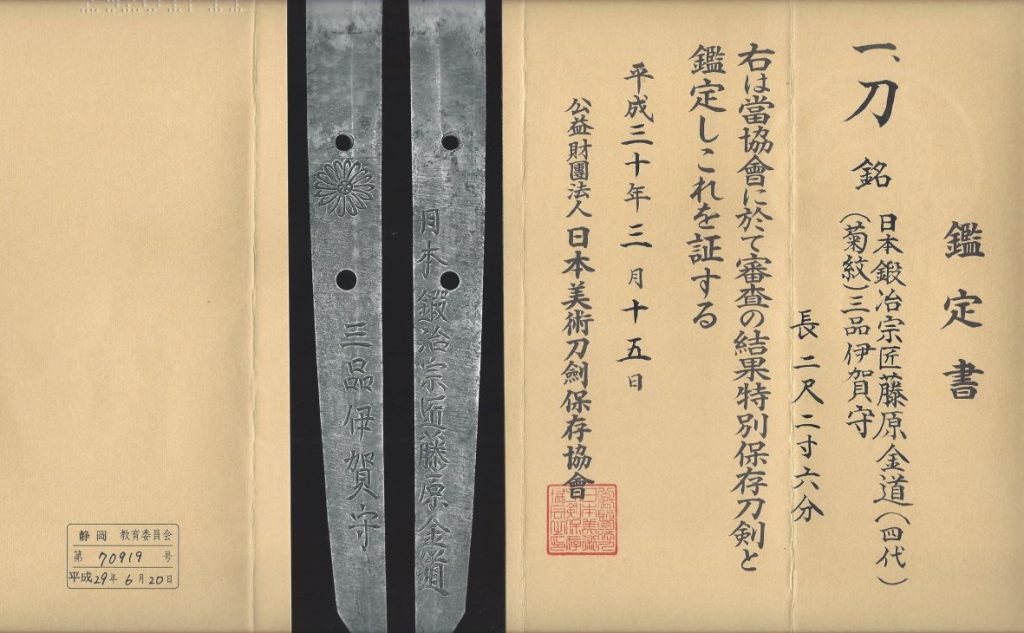 鑑定書
一、刀 銘 日本鍛冶宗匠藤原金道(四代)
(菊紋)三品伊賀守
長二尺二寸六分
右は當協會に於て審査の結果特別保存刀剣と
鑑定しこれを証する
平成三十年三月十五日
公益財團法人日本美術刀劍保存協會
日本鍛冶宗匠藤原金道
三品伊賀守
静岡 教育委員会
第 70919 号
平成29年 6月20日